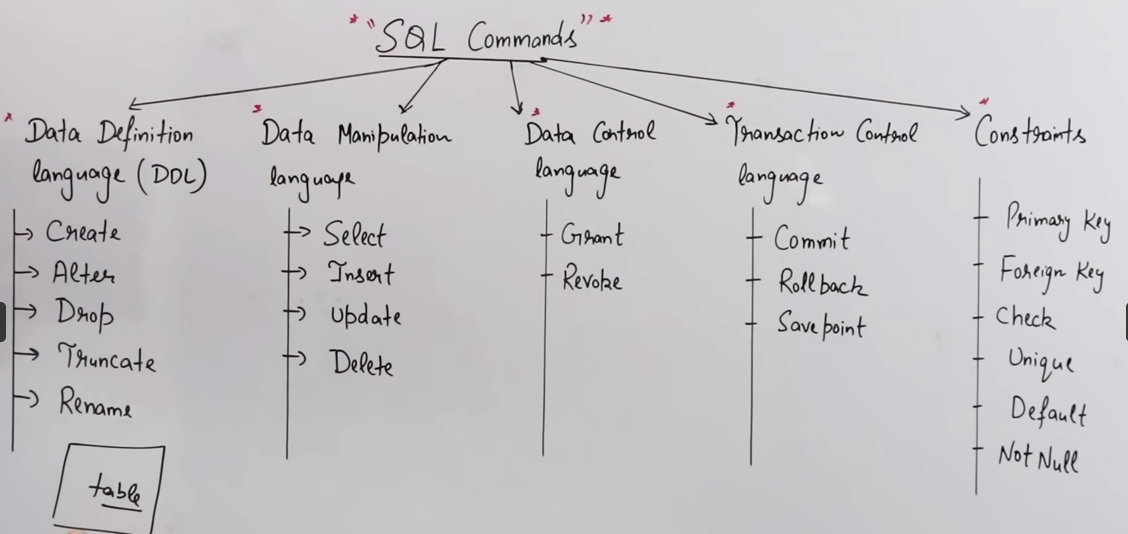 "SQL Commands"
Data Definition
language (DDL)
Create
Alter
Drop
Truncate
Rename
table
Data Manipulation
language
Select
Insert
Update
Delete
Data Control
language
Grant
Revoke
Transaction Control
language
Commit
Rollback
Savepoint
Constraints
Primary Key
Foreign Key
Check
Unique
Default
Not Null